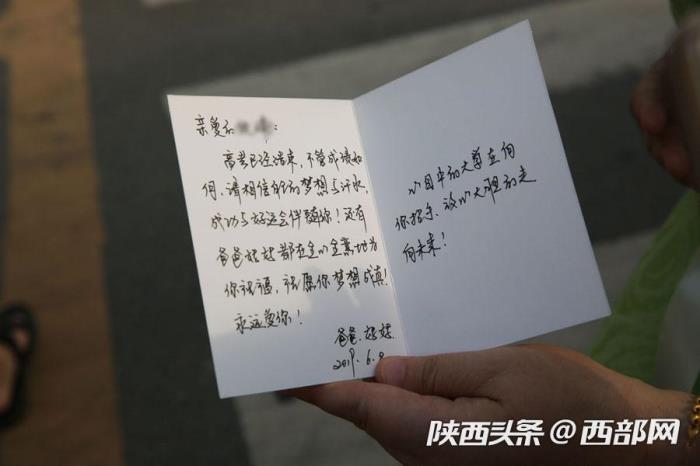 亲爱的
高考已经结束，不管成绩如
何，请相信自己的梦想与汗水，
成功与好运会伴随你！还有
爸爸妈妈都在全心全意地为
你祝福，祝愿你梦想成真！
永远爱你！
爸爸.妈妈.
2019.6.8
心目中的大学在向
你招手，放心大胆的走
向未来！
陕西头条@西部网